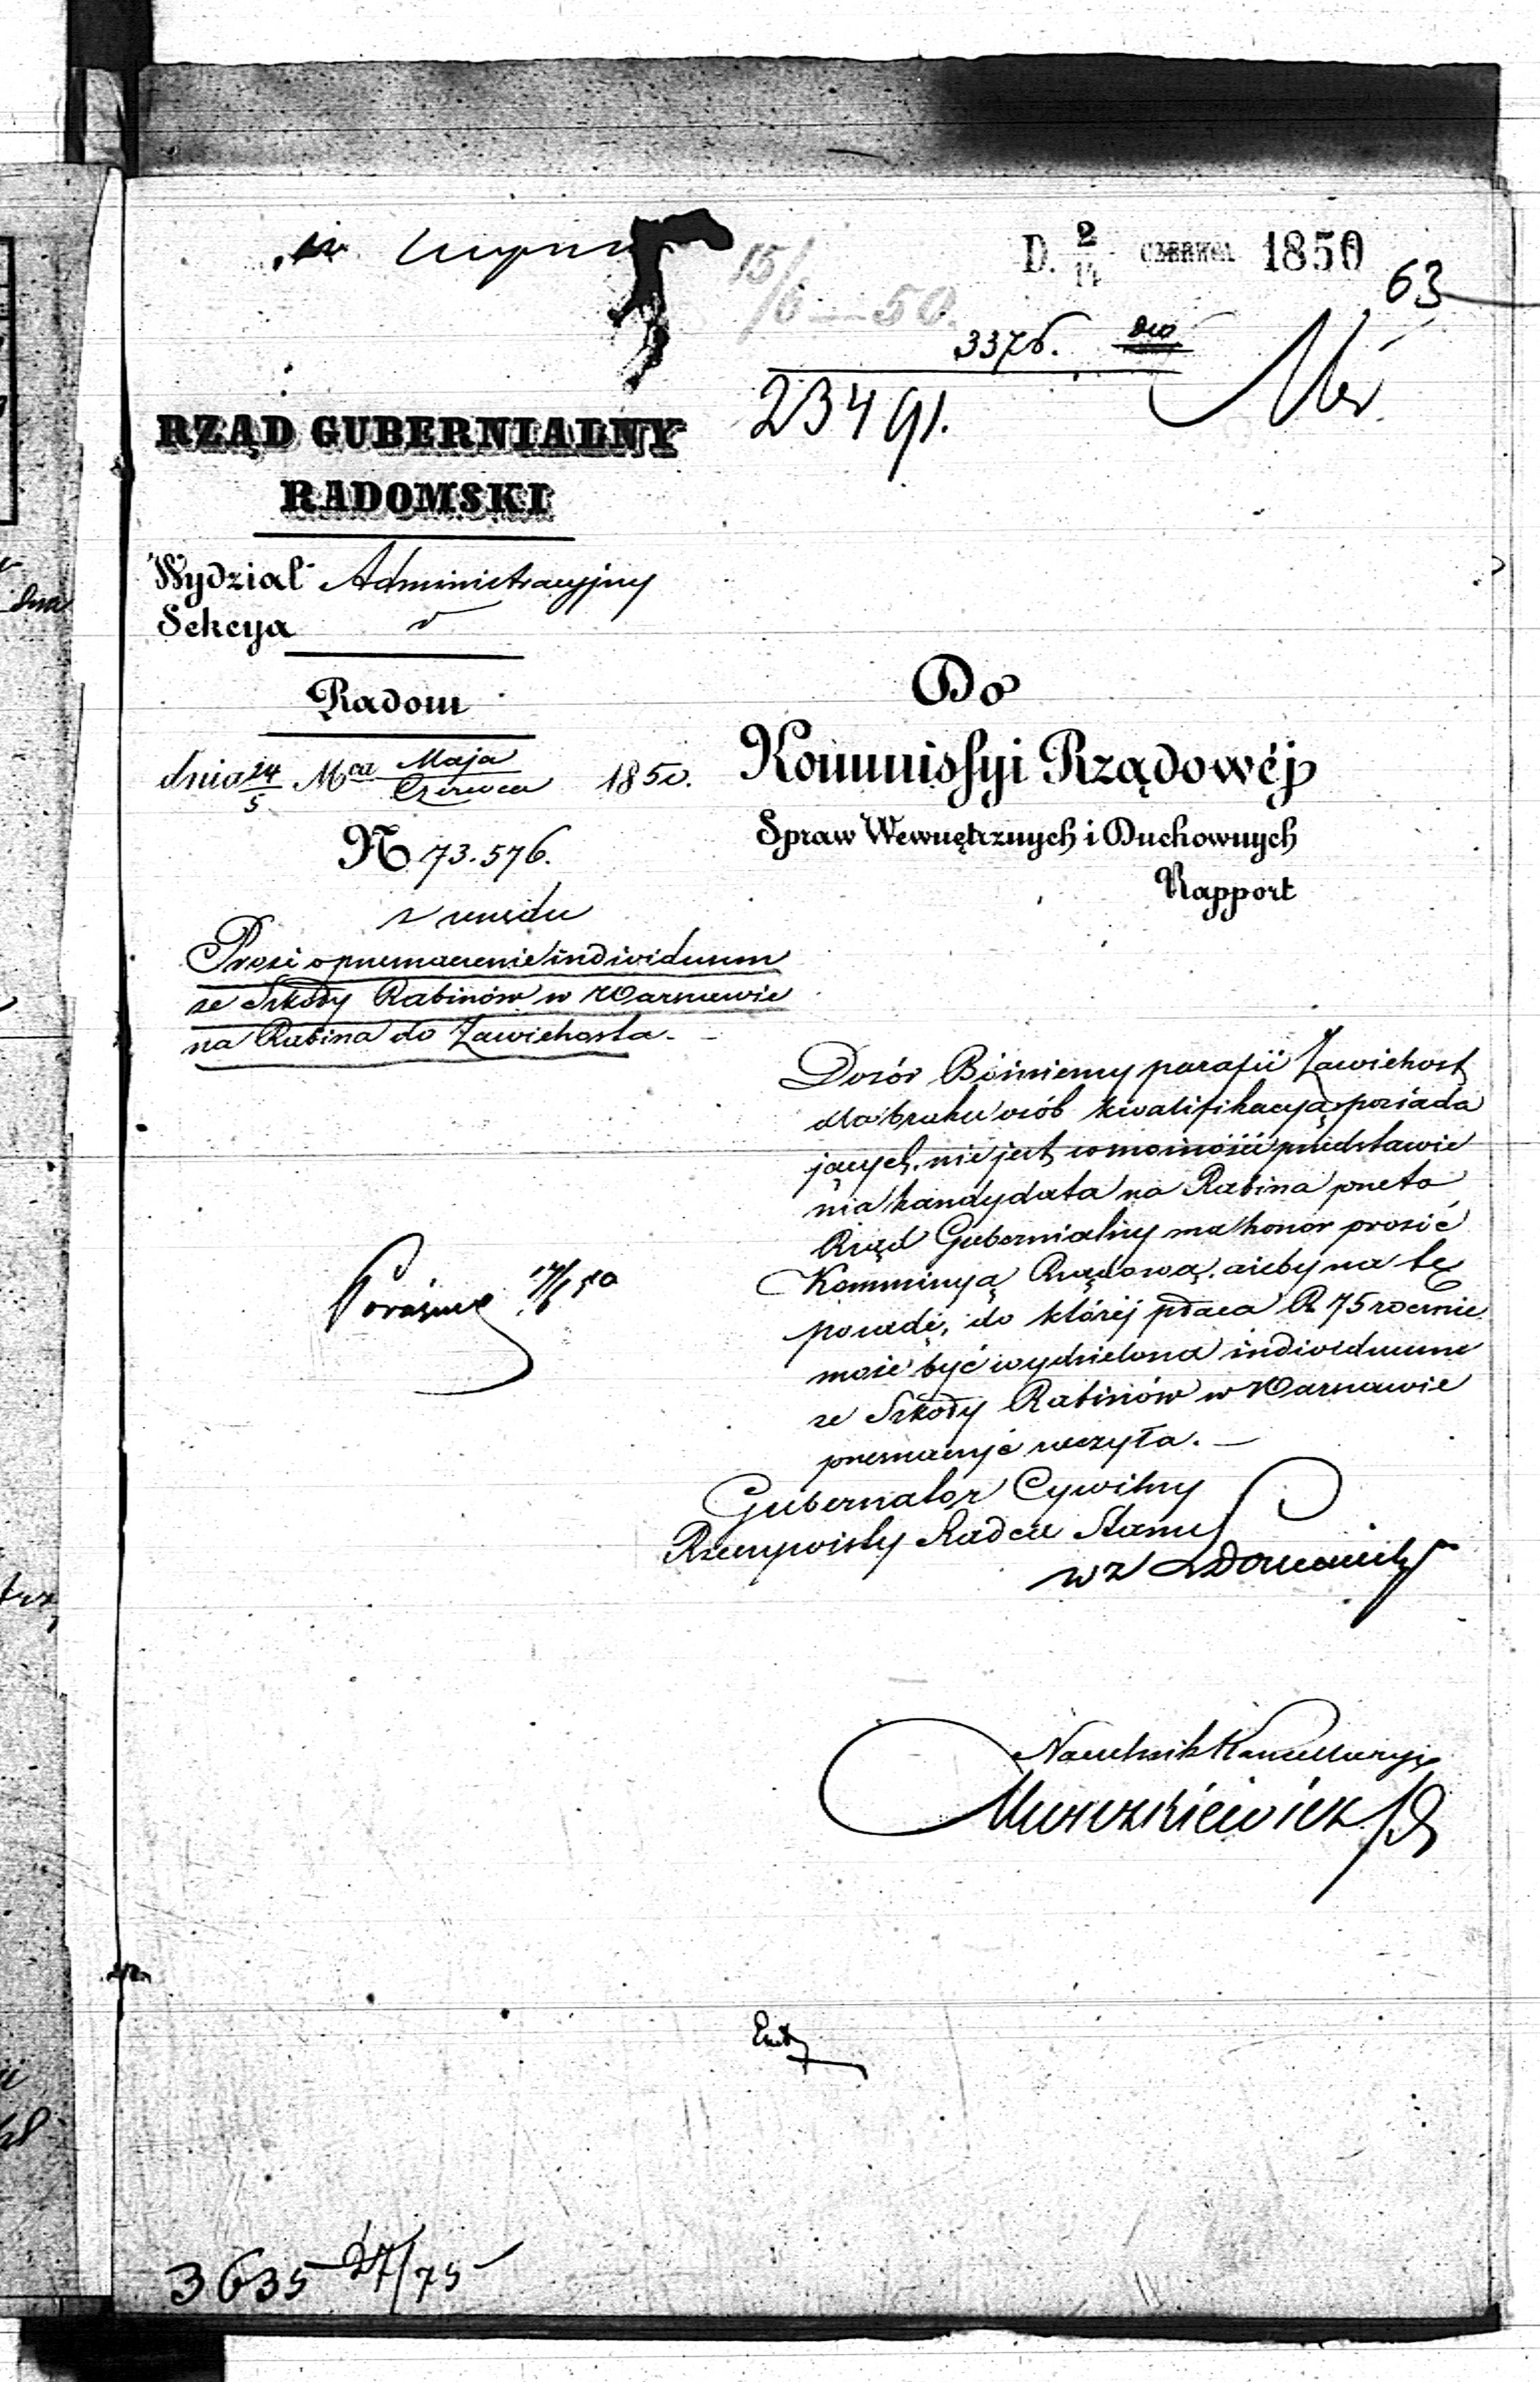 D. 2/14 CZERWCA 1850
63
15/6 — 50.
3376.
23491.
RZĄD GUBERNIALNY
RADOMSKI
Wydział Administracyjny
Sekcya
Radom
dnia 24/5 Mca Maja/Czerwca 1850.
N 73.576.
z urzędu
Prosi o przeznaczenie individuum
ze Szkoły Rabinów w Warszawie
na Rabina do Zawichosta.
Do
Kommissyi Rządowéj
Spraw Wewnętrznych i Duchownych
Rapport
Dozór Bóżniczny parafii Zawichost
dla braku osób kwalifikacyą posiada
jących, nie jest w możności przedstawie
nia kandydata na Rabina przeto
Rząd Gubernialny ma honor prosić
Kommissyą Rządową, ażeby na tę
posadę, do której płaca R 75 rocznie
może być wydzielona individuum
ze Szkoły Rabinów w Warszawie
przeznaczyć raczyła. —
17/6 50
Gubernator Cywilny
Rzeczywisty Radca Stanu
wz
Naczelnik Kancellaryi
3635 27/75